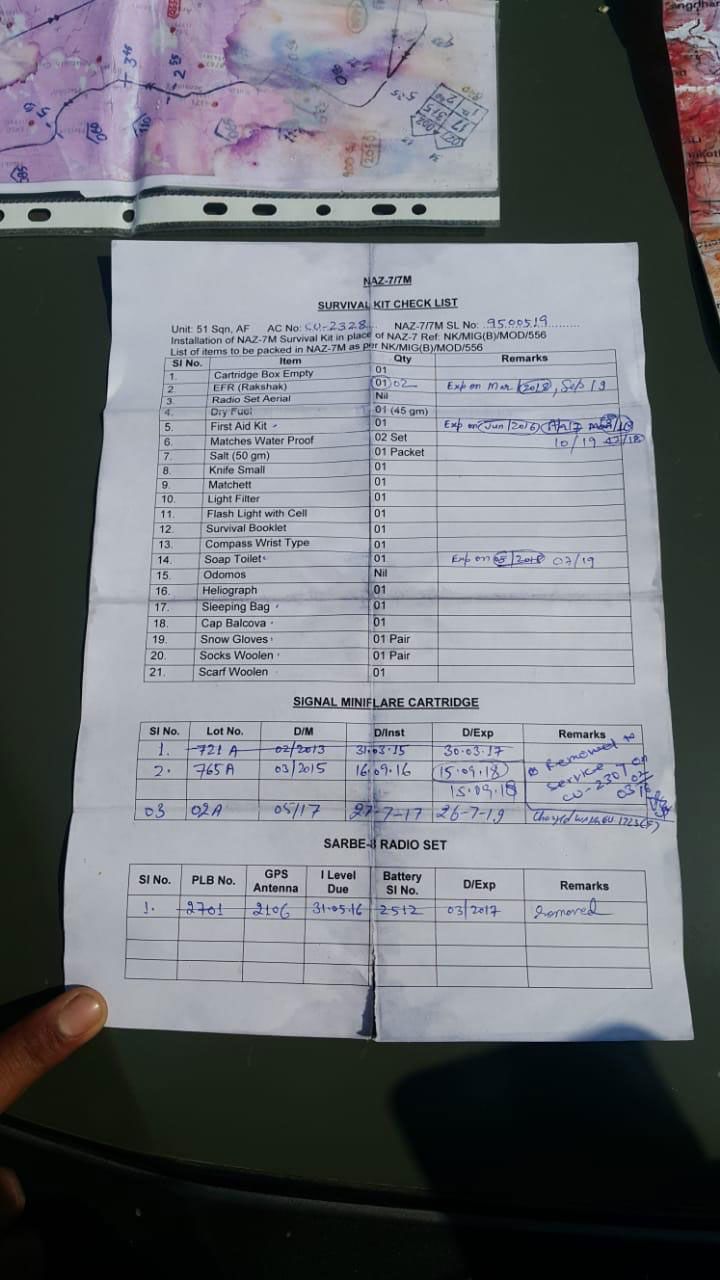 NAZ-7/7M
SURVIVAL KIT CHECK LIST
Unit: 51 Sqn, AF AC No: CU-2328 NAZ-7/7M SL No: 9500519
Installation of NAZ-7M Survival Kit in place of NAZ-7 Ref: NK/MIG(B)/MOD/556
List of items to be packed in NAZ-7M as per NK/MIG(B)/MOD/556
Sl No. Item Qty Remarks
1. Cartridge Box Empty 01
2. EFR (Rakshak) 01 02 Exp on Mar 2018, Sep 19
3. Radio Set Aerial Nil
4. Dry Fuel 01 (45 gm)
5. First Aid Kit 01 Exp on Jun/2016
6. Matches Water Proof 02 Set 10/19
7. Salt (50 gm) 01 Packet
8. Knife Small 01
9. Matchett 01
10. Light Filter 01
11. Flash Light with Cell 01
12. Survival Booklet 01
13. Compass Wrist Type 01
14. Soap Toilet 01 Exp on 05/2018 07/19
15. Odomos Nil
16. Heliograph 01
17. Sleeping Bag 01
18. Cap Balcova 01
19. Snow Gloves 01 Pair
20. Socks Woolen 01 Pair
21. Scarf Woolen 01
SIGNAL MINIFLARE CARTRIDGE
Sl No. Lot No. D/M D/Inst D/Exp Remarks
1. 721 A 02/2013 31.03.15 30.03.17
2. 765A 03/2015 16.09.16 15.09.18 Removed to
15.09.18 service CU-2307 on
03 02A 05/17 27-7-17 26-7-19
SARBE-8 RADIO SET
Sl No. PLB No. GPS Antenna I Level Due Battery Sl No. D/Exp Remarks
1. 2701 2106 31.05.16 2512 03/2017 Removed